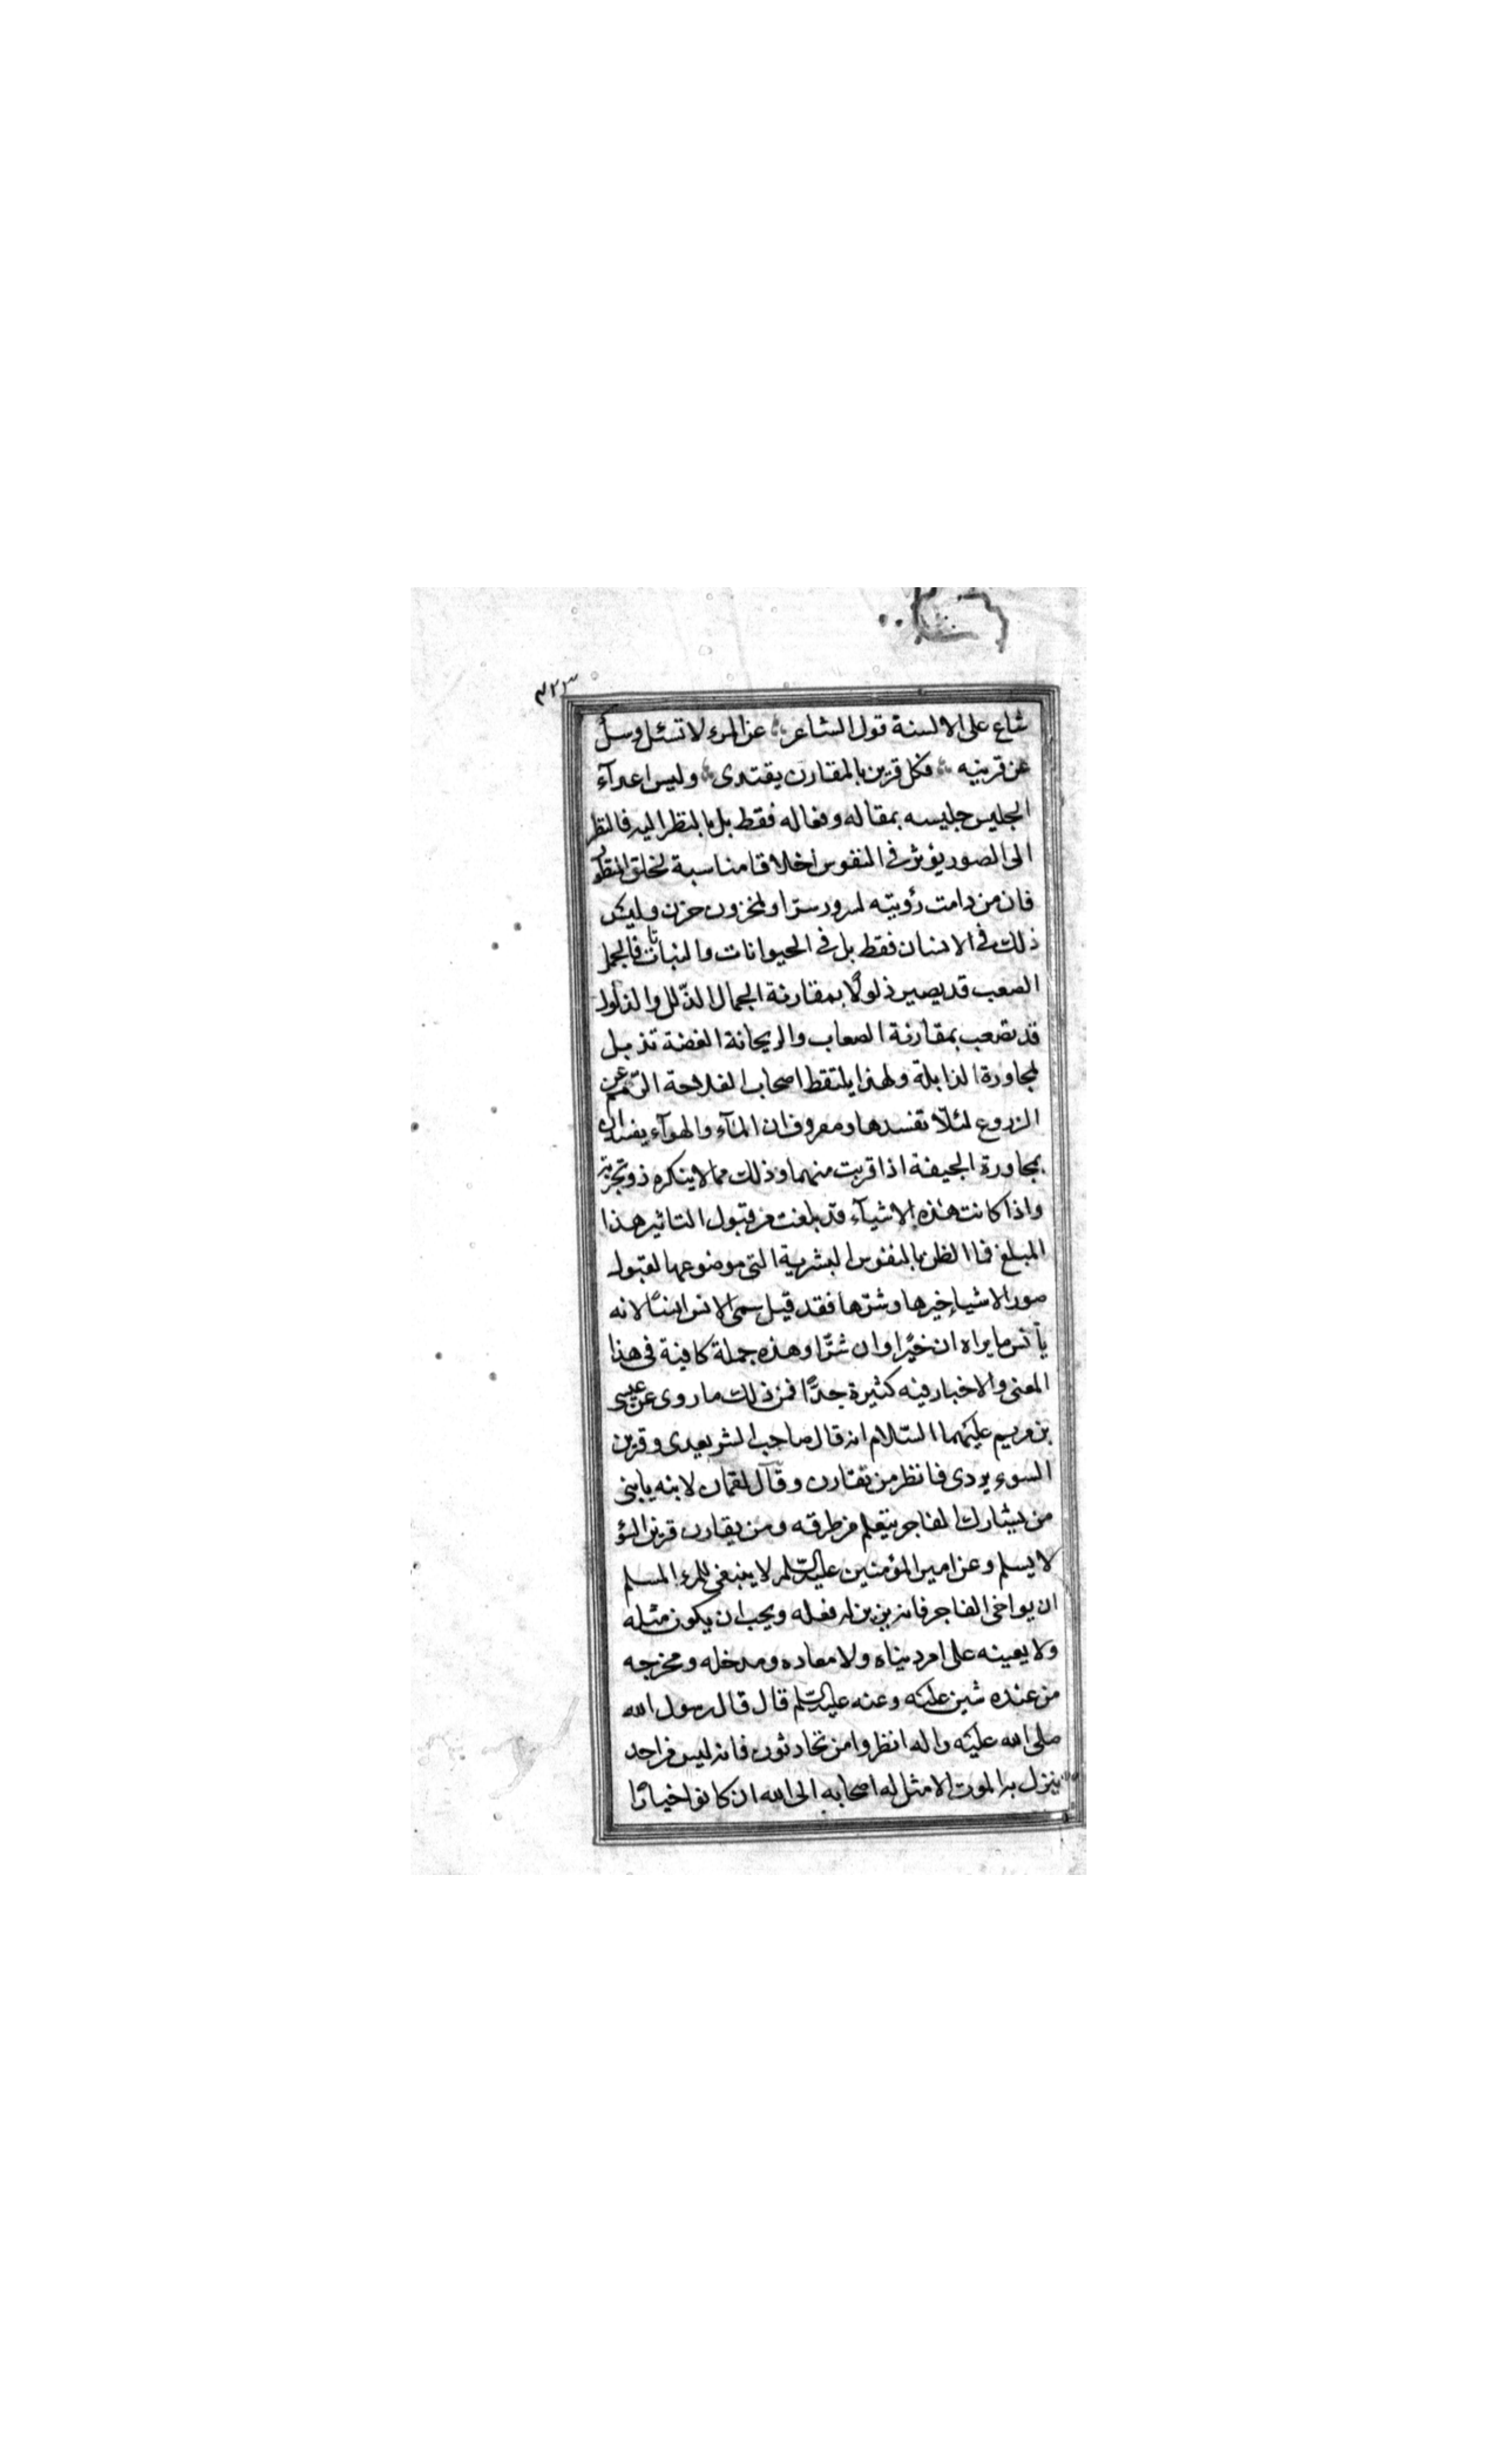 ٤٢٣
شاع على الالسنة قول الشاعر عن المرء لا تسئل وسل
عن قرينه فكل قرين بالمقارن يقتدى وليس اعدآء
الجليس جليسه بمقاله وفعاله فقط بل بالنظر اليه فالنظر
الى الصور يؤثر فى النفوس اخلاقا مناسبة لخلق المنظور
فان من دامت رؤيته لمسرور سر او لمحزون حزن وليس
ذلك فى الانسان فقط بل فى الحيوانات والنباتات فالجمل
الصعب قد يصير ذلولًا بمقارنة الجمال الذّلل والذلول
قد تصعب بمقارنة الصعاب والريحانة الغضة تذبل
لمجاورة الذابلة ولهذا يلتقط اصحاب الفلاحة الرّمم عن
الزروع لئلّا تفسدها ومعروف ان المآء والهوآء يفسدان
بمجاورة الجيفة اذا قربت منهما وذلك مما لا ينكره ذو تجربة
واذا كانت هذه الاشيآء قد بلغت من قبول التاثير هذا
المبلغ فما الظن بالنفوس البشرية التى موضوعها لقبول
صور الاشياء خيرها وشرّها فقد قيل سمى الانس انسًا لانه
يأنس ما يراه ان خيرًا وان شرًّا وهذه جملة كافية فى هذا
المعنى والاخبار فيه كثيرة جدًّا فمن ذلك ما روى عن عيسى
بن مريم عليهما السّلام انه قال صاحب الشر يعدى وقرين
السوء يردى فانظر من تقارن وقآل لقمان لابنه يا بنى
من يشارك الفاجر يتعلم من طرقه ومن يقارن قرين السؤ
لا يسلم وعن امير المؤمنين عليه السّلم لا ينبغى للمرء المسلم
ان يواخى الفاجر فانه يزين له فعله ويحب ان يكون مثله
ولا يعينه على امر دنياه ولا معاده ومدخله ومخرجه
من عنده شين عليه وعنه عليه السّلم قال قال رسول الله
صلى الله عليه واله انظروا من تحادثون فانه ليس من احد
ينزل به الموت الا مثل له اصحابه الى الله ان كانوا خيارًا